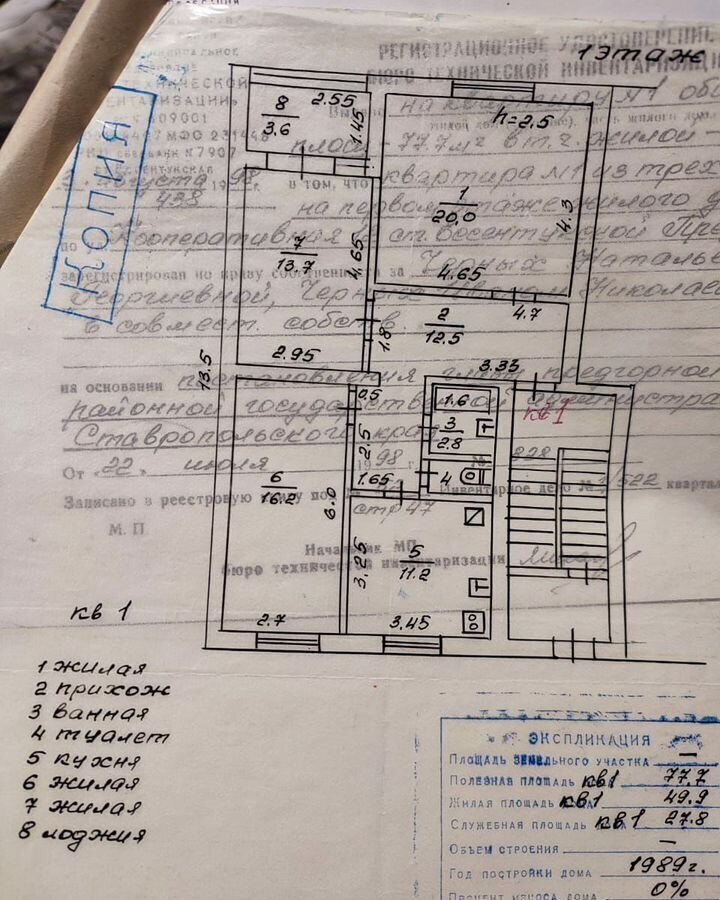 РЕГИСТРАЦИОННОЕ УДОСТОВЕРЕНИЕ
1 ЭТАЖ
БЮРО ТЕХНИЧЕСКОЙ ИНВЕНТАРИЗАЦИИ
КОПИЯ
на квартиру №1
h=2.5
площ - 77.7м² в т.г. жилой -
3 августа 1998 г.
438
в том, что квартира №1 из трех
на первом этаже жилого
по Кооперативная
зарегистрирован по праву собственности за Черных Наталье
Георгиевной, Черных Иваном Николае
в совмест. собств.
на основании постановления главы предгорной
районной государственной администра
Ставропольского края
От "22" июля 1998 г. №
Записано в реестровую книгу под №
стр 47
Инвентарное дело № 1/522 кварта
М. П.
Начальник МП
бюро технической инвентаризации
8
3.6
2.55
1.45
1
20.0
4.3
4.65
7
13.7
4.65
2.95
13.5
2
12.5
4.7
1.8
3.33
кв 1
0.5
1.6
3
2.8
2.5
1.65
4
6
16.2
6.0
2.7
5
11.2
3.25
3.45
кв 1
1 жилая
2 прихож
3 ванная
4 туалет
5 кухня
6 жилая
7 жилая
8 лоджия
ЭКСПЛИКАЦИЯ
ПЛОЩАДЬ ЗЕМЕЛЬНОГО УЧАСТКА —
ПОЛЕЗНАЯ ПЛОЩАДЬ кв1 77.7
ЖИЛАЯ ПЛОЩАДЬ кв1 49.9
СЛУЖЕБНАЯ ПЛОЩАДЬ кв1 27.8
ОБЪЕМ СТРОЕНИЯ —
ГОД ПОСТРОЙКИ ДОМА 1989г.
ПРОЦЕНТ ИЗНОСА ДОМА 0%